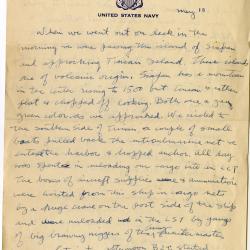 UNITED STATES NAVY
May 18
When we went out on deck in the
morning we were passing the island of Saipan
and approaching Tinian Island. These islands
are of volcanic origin. Saipan has a mountain
in the center rising to 150 but Tinian is rather
flat & chopped off looking. Both are a gray
green color as we approached. We sailed to
the southern side of Tinian a couple of small
boats pulled back the anti-submarine net we
entered the harbor & dropped anchor. All day
was spent in unloading our cargo into a LCT
The boxes of aircraft supplies & ammunition
were hoisted from this ship in cargo nets
by a huge crane on the port side of the ship
and unloaded in the LST by gangs
of big brawny niggers of the quartermaster